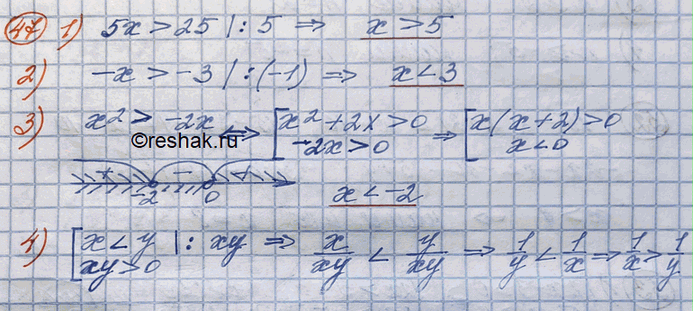 47 1) 5x > 25 |: 5 ⇒ x > 5
2) -x > -3 |: (-1) ⇒ x < 3
3) x² > -2x ⇔ [x² + 2x > 0 ⇒ [x(x+2) > 0
-2x > 0 x < 0
©reshak.ru
+ - +
-2 0 x < -2
4) [x < y |: xy ⇒ x/xy < y/xy ⇒ 1/y < 1/x ⇒ 1/x > 1/y
xy > 0